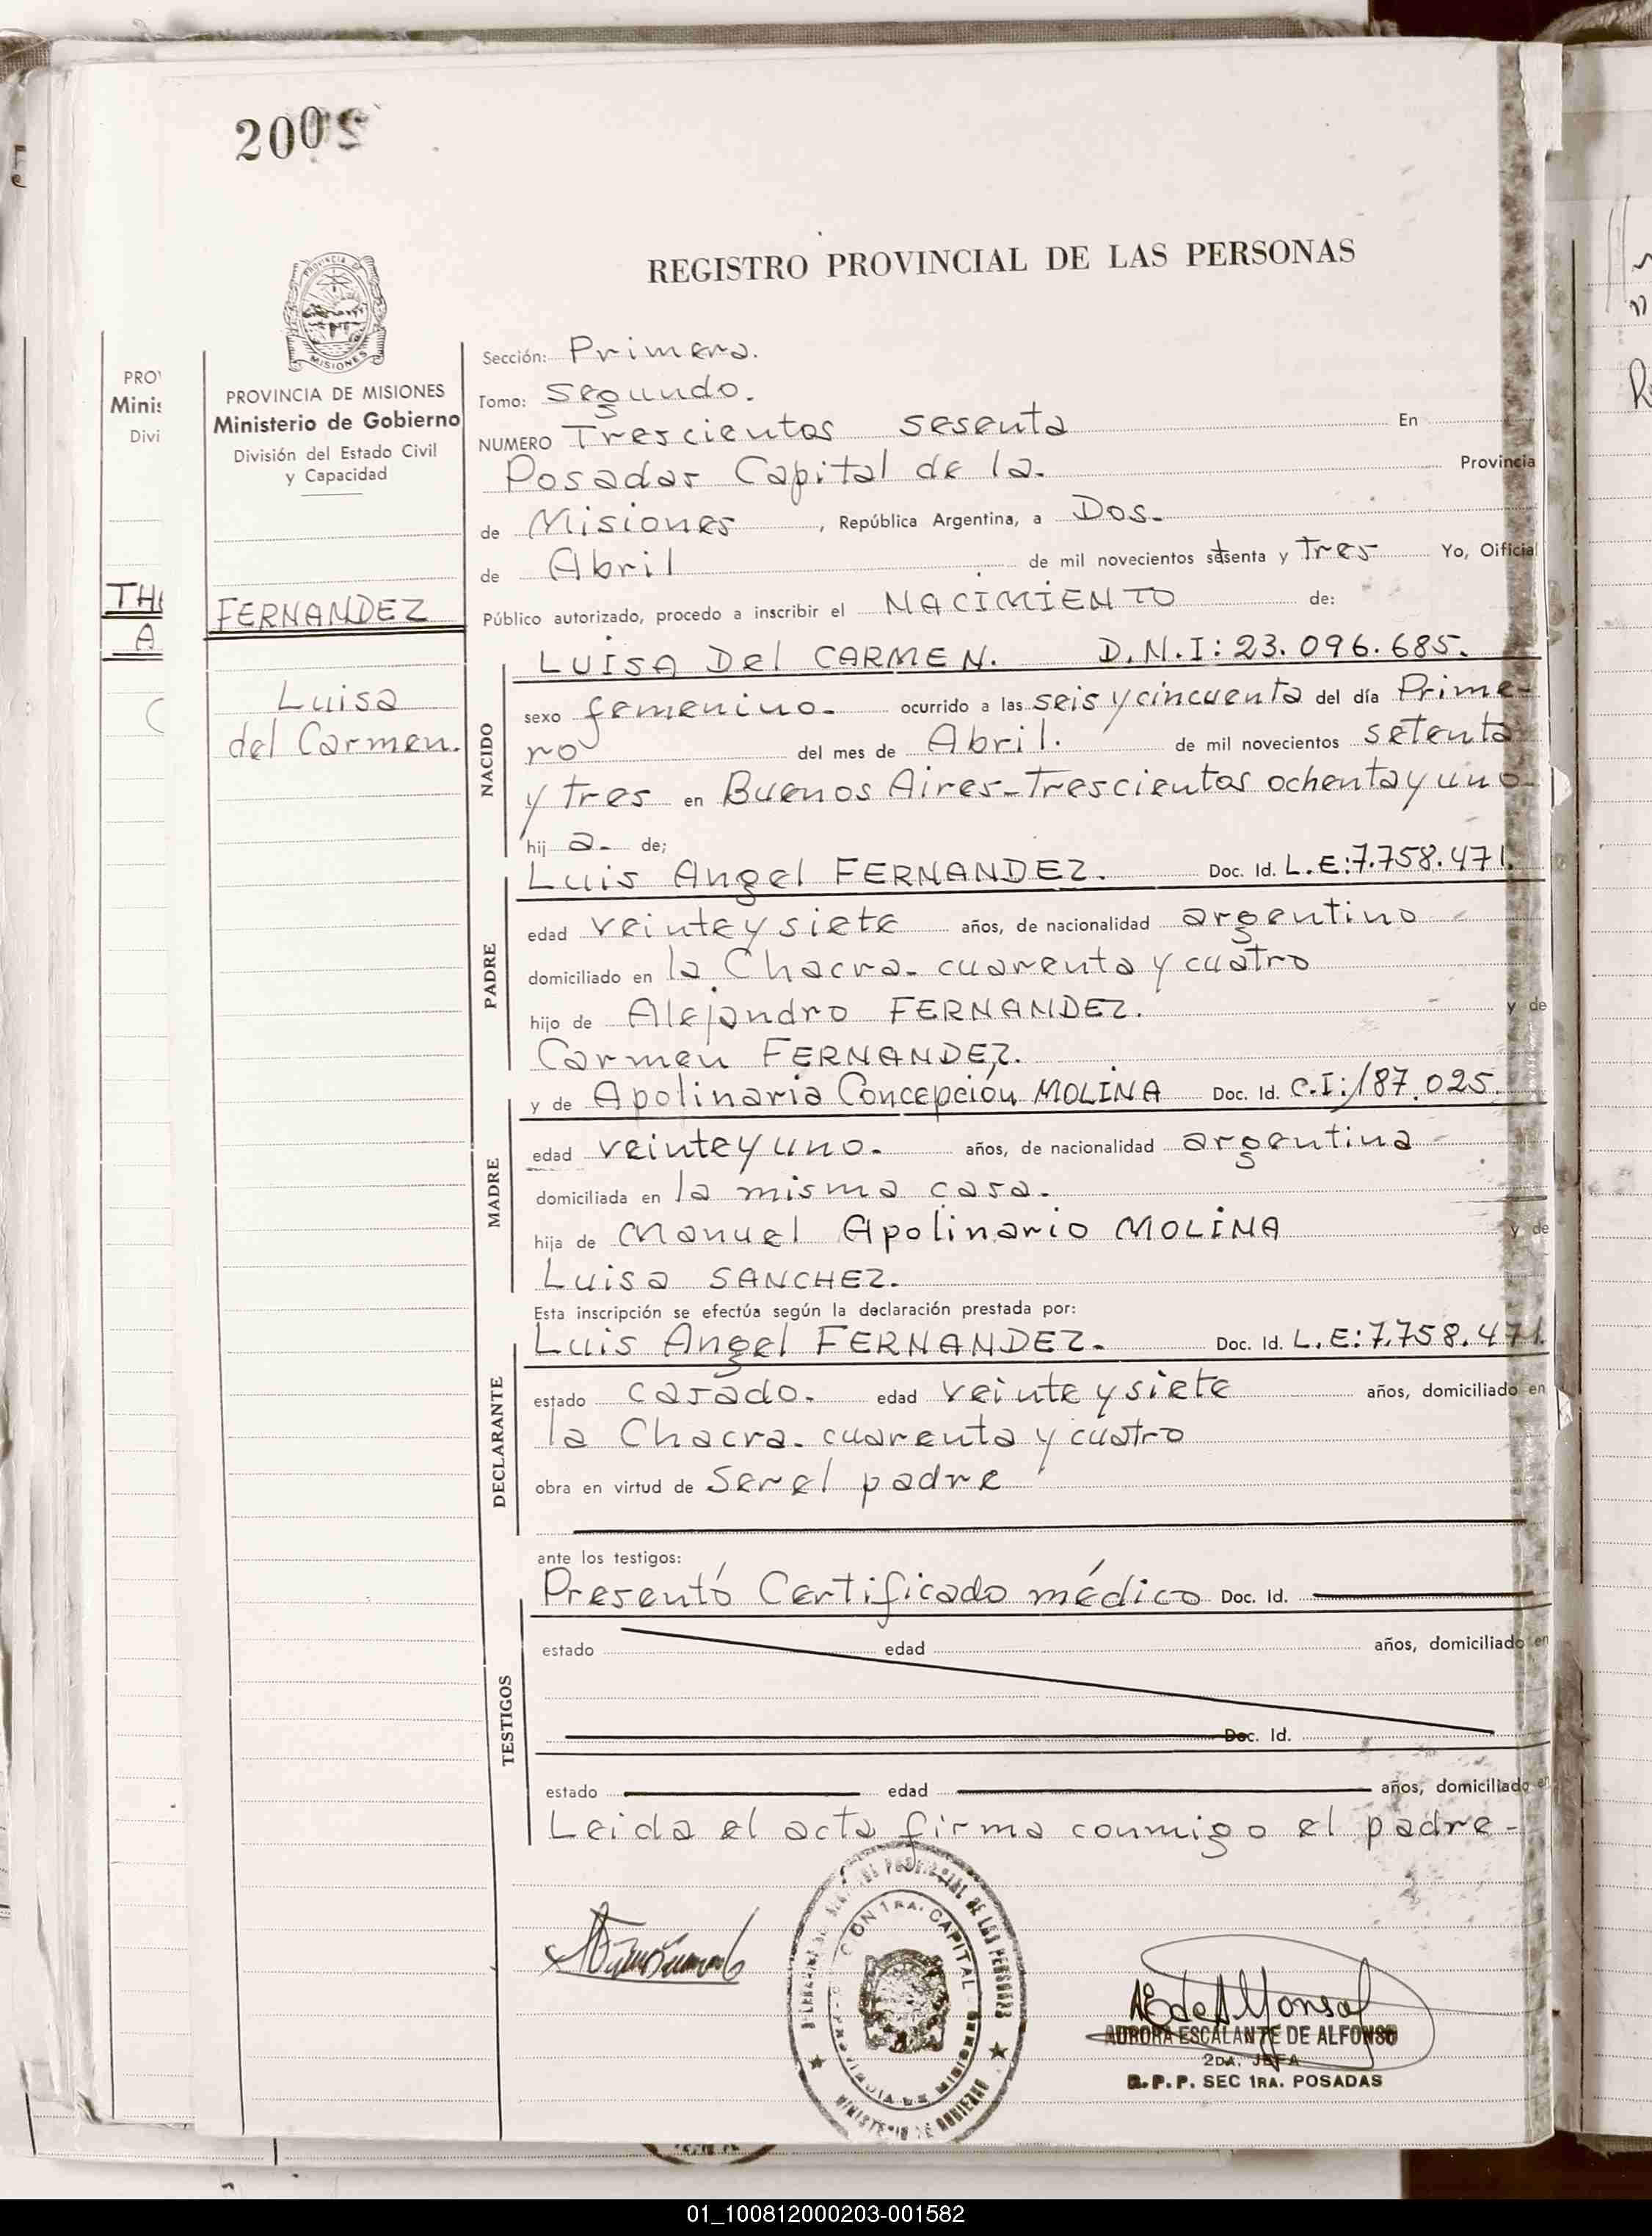 200
REGISTRO PROVINCIAL DE LAS PERSONAS
PROVINCIA DE MISIONES
Ministerio de Gobierno
División del Estado Civil
y Capacidad
FERNANDEZ
Luisa
del Carmen.
Sección: Primera.
Tomo: Segundo.
NUMERO Trescientos sesenta En
Posadas Capital de la. Provincia
de Misiones, República Argentina, a Dos.
de Abril de mil novecientos setenta y Tres Yo, Oificial
Público autorizado, procedo a inscribir el NACIMIENTO de:
NACIDO
LUISA Del CARMEN. D.N.I: 23.096.685.
sexo femenino. ocurrido a las seis y cincuenta del día Prime-
ro del mes de Abril. de mil novecientos setenta
y tres en Buenos Aires-Trescientos ochenta y uno
hij a. de;
PADRE
Luis Angel FERNANDEZ. Doc. Id. L.E:7.758.471.
edad veinte y siete años, de nacionalidad argentino
domiciliado en la Chacra. cuarenta y cuatro
hijo de Alejandro FERNANDEZ. y de
Carmen FERNANDEZ.
MADRE
y de Apolinaria Concepción MOLINA Doc. Id. C.I:187.025.
edad veinte y uno. años, de nacionalidad argentina
domiciliada en la misma casa.
hija de Manuel Apolinario MOLINA y de
Luisa SANCHEZ.
Esta inscripción se efectúa según la declaración prestada por:
DECLARANTE
Luis Angel FERNANDEZ. Doc. Id. L.E:7.758.471.
estado casado. edad veinte y siete años, domiciliado en
la Chacra. cuarenta y cuatro
obra en virtud de Ser el padre
ante los testigos:
TESTIGOS
Presentó Certificado médico Doc. Id.
estado edad años, domiciliado en
Doc. Id.
estado edad años, domiciliado en
Leida el acta firma conmigo el padre-
CAPITAL
PROVINCIA DE MISIONES
MINISTERIO DE GOBIERNO
AURORA ESCALANTE DE ALFONSO
2DA. JEFA
R.P.P. SEC 1RA. POSADAS
01_100812000203-001582